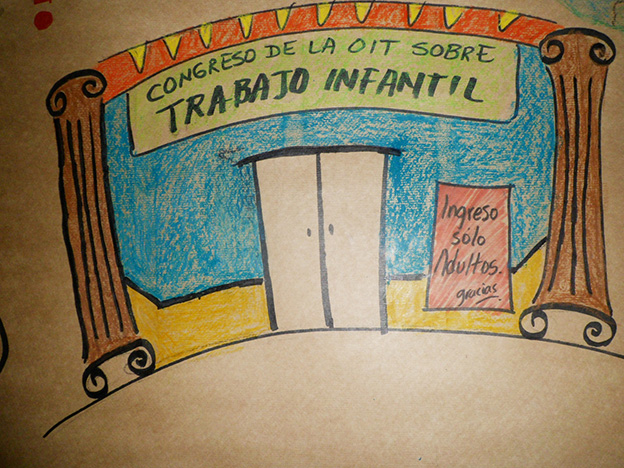 CONGRESO DE LA OIT SOBRE
TRABAJO INFANTIL
Ingreso
sólo
Adultos.
gracias